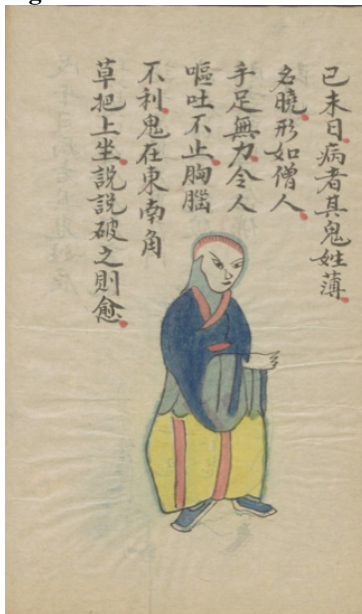 己未日病者其鬼姓薄
名曉形如僧人
手足無力令人
嘔吐不止胸膈
不利鬼在東南角
草把上坐説説破之則愈